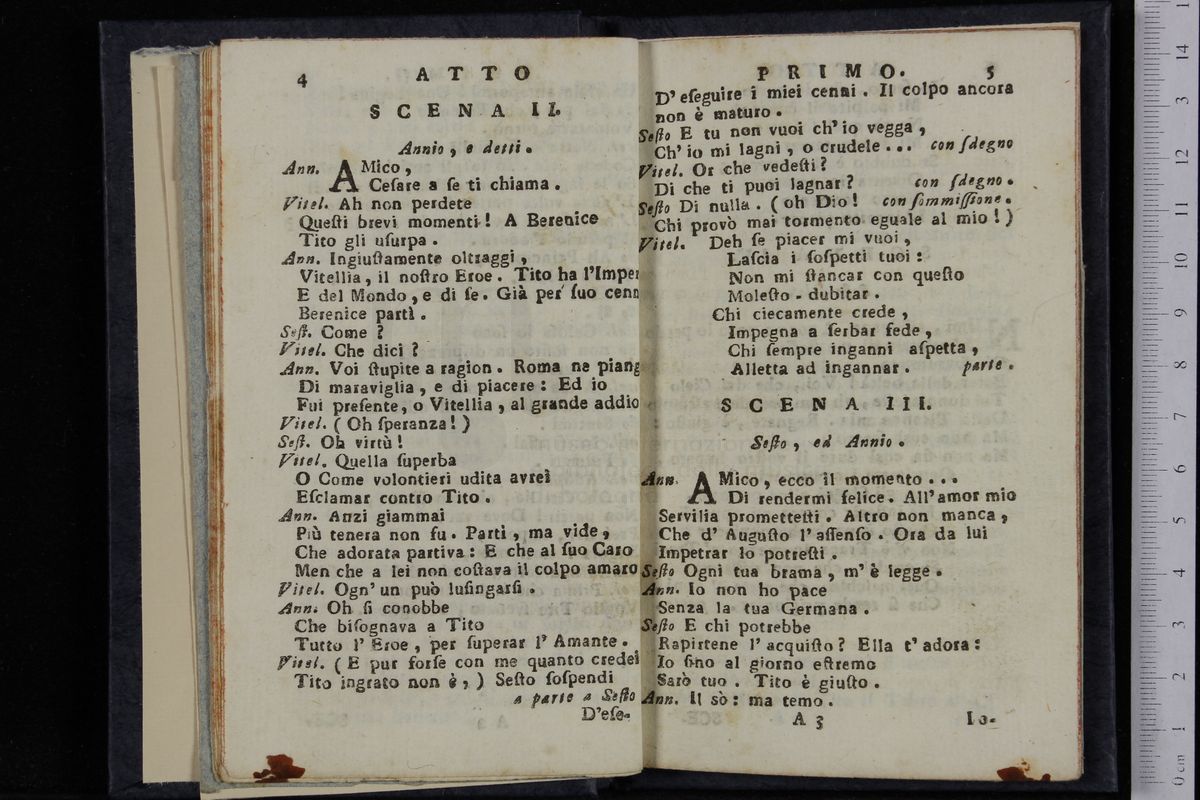 4 ATTO
SCENA II.
Annio, e detti.
Ann. AMico,
Ceſare a ſe ti chiama.
Vitel. Ah non perdete
Queſti brevi momenti! A Berenice
Tito gli uſurpa.
Ann. Ingiuſtamente oltraggi,
Vitellia, il noſtro Eroe. Tito ha l'Imper
E del Mondo, e di ſe. Già per ſuo cenn
Berenice partì.
Seſt. Come?
Vitel. Che dici?
Ann. Voi ſtupite a ragion. Roma ne piang
Di maraviglia, e di piacere: Ed io
Fui preſente, o Vitellia, al grande addio
Vitel. (Oh ſperanza!)
Seſt. Oh virtù!
Vitel. Quella ſuperba
O Come volontieri udita avrei
Eſclamar contro Tito.
Ann. Anzi giammai
Più tenera non fu. Parti, ma vide,
Che adorata partiva: E che al ſuo Caro
Men che a lei non coſtava il colpo amaro
Vitel. Ogn'un può luſingarſi.
Ann. Oh ſi conobbe
Che biſognava a Tito
Tutto l'Eroe, per ſuperar l'Amante.
Vitel. (E pur forſe con me quanto credei
Tito ingrato non è,) Seſto ſoſpendi
a parte a Seſto
D'eſe-
PRIMO. 5
D'eſeguire i miei cenni. Il colpo ancora
non è maturo.
Seſto E tu non vuoi ch'io vegga,
Ch'io mi lagni, o crudele... con ſdegno
Vitel. Or che vedeſti?
Di che ti puoi lagnar? con ſdegno.
Seſto Di nulla. (oh Dio! con ſommiſſione.
Chi provò mai tormento eguale al mio!)
Vitel. Deh ſe piacer mi vuoi,
Laſcia i ſoſpetti tuoi:
Non mi ſtancar con queſto
Moleſto - dubitar.
Chi ciecamente crede,
Impegna a ſerbar fede,
Chi ſempre inganni aſpetta,
Alletta ad ingannar. parte.
SCENA III.
Seſto, ed Annio.
Ann. AMico, ecco il momento...
Di rendermi felice. All'amor mio
Servilia prometteſti. Altro non manca,
Che d'Auguſto l'aſſenſo. Ora da lui
Impetrar lo potreſti.
Seſto Ogni tua brama, m'è legge.
Ann. Io non ho pace
Senza la tua Germana.
Seſto E chi potrebbe
Rapirtene l'acquiſto? Ella t'adora:
Io ſino al giorno eſtremo
Sarò tuo. Tito è giuſto.
Ann. Il sò: ma temo.
A 3 Io-
0 cm 1 2 3 4 5 6 7 8 9 10 11 12 13 14